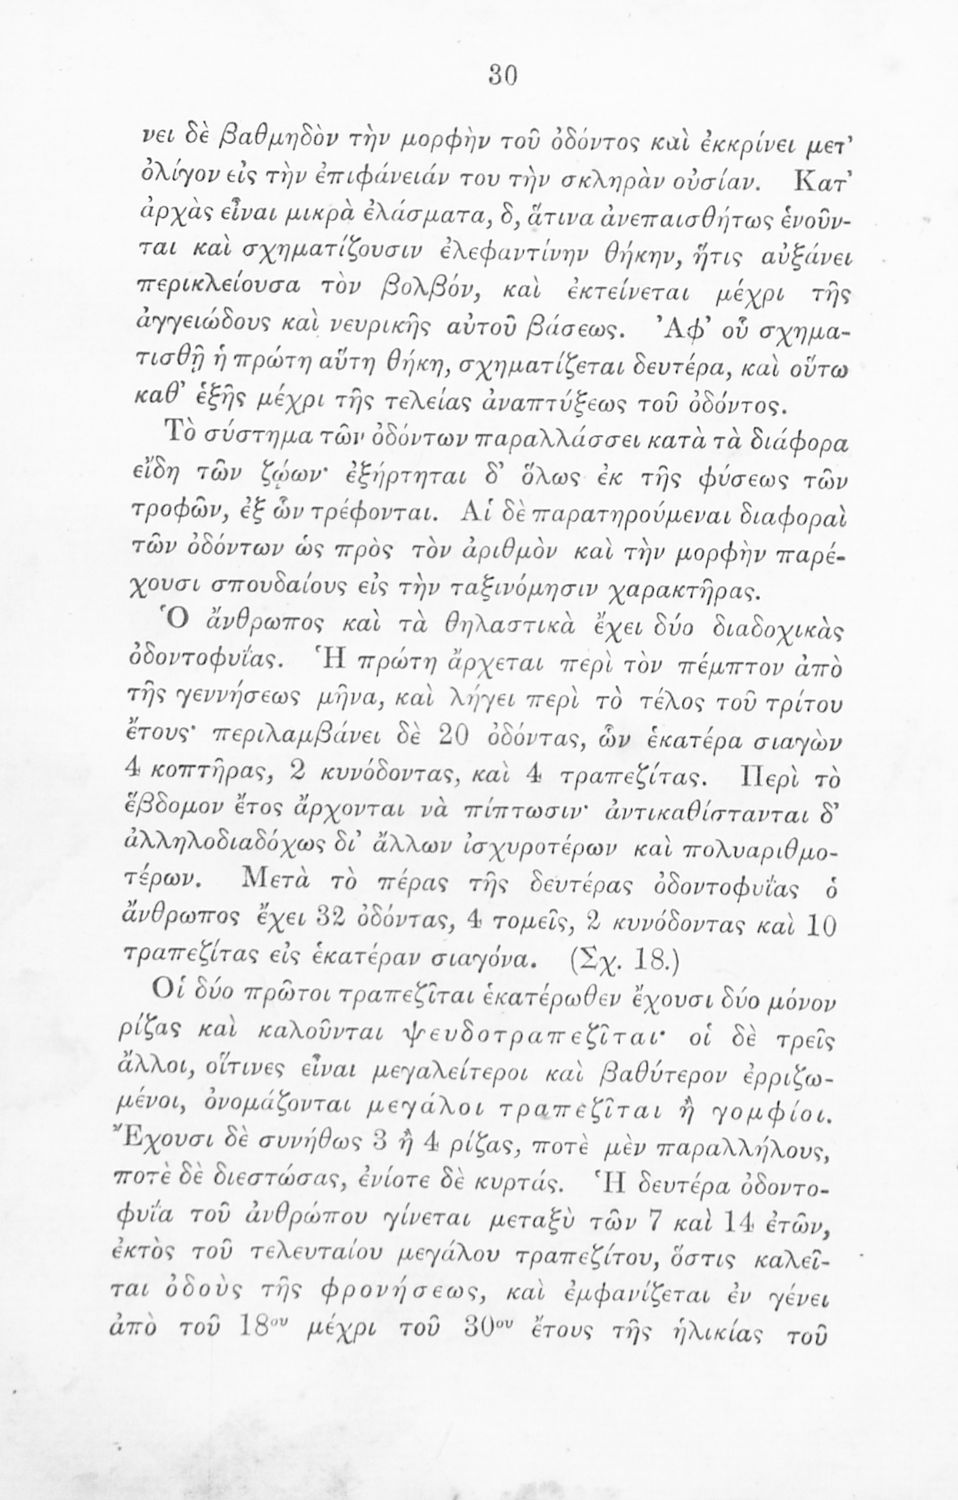 30
νει δὲ βαθμηδὸν τὴν μορφὴν τοῦ ὀδόντος καὶ ἐκκρίνει μετ’
ὀλίγον εἰς τὴν ἐπιφάνειάν του τὴν σκληρὰν οὐσίαν. Κατ’
ἀρχὰς εἶναι μικρὰ ἐλάσματα, δ, ἅτινα ἀνεπαισθήτως ἑνοῦν-
ται καὶ σχηματίζουσιν ἐλεφαντίνην θήκην, ἥτις αὐξάνει
περικλείουσα τὸν βολβόν, καὶ ἐκτείνεται μέχρι τῆς
ἀγγειώδους καὶ νευρικῆς αὐτοῦ βάσεως. Ἀφ’ οὗ σχημα-
τισθῇ ἡ πρώτη αὕτη θήκη, σχηματίζεται δευτέρα, καὶ οὕτω
καθ’ ἑξῆς μέχρι τῆς τελείας ἀναπτύξεως τοῦ ὀδόντος.
Τὸ σύστημα τῶν ὀδόντων παραλλάσσει κατὰ τὰ διάφορα
εἴδη τῶν ζῴων· ἐξήρτηται δ’ ὅλως ἐκ τῆς φύσεως τῶν
τροφῶν, ἐξ ὧν τρέφονται. Αἱ δὲ παρατηρούμεναι διαφοραὶ
τῶν ὀδόντων ὡς πρὸς τὸν ἀριθμὸν καὶ τὴν μορφὴν παρέ-
χουσι σπουδαίους εἰς τὴν ταξινόμησιν χαρακτῆρας.
Ὁ ἄνθρωπος καὶ τὰ θηλαστικὰ ἔχει δύο διαδοχικὰς
ὀδοντοφυΐας. Ἡ πρώτη ἄρχεται περὶ τὸν πέμπτον ἀπὸ
τῆς γεννήσεως μῆνα, καὶ λήγει περὶ τὸ τέλος τοῦ τρίτου
ἔτους· περιλαμβάνει δὲ 20 ὀδόντας, ὧν ἑκατέρα σιαγὼν
4 κοπτῆρας, 2 κυνόδοντας, καὶ 4 τραπεζίτας. Περὶ τὸ
ἕβδομον ἔτος ἄρχονται νὰ πίπτωσιν· ἀντικαθίστανται δ’
ἀλληλοδιαδόχως δι’ ἄλλων ἰσχυροτέρων καὶ πολυαριθμο-
τέρων. Μετὰ τὸ πέρας τῆς δευτέρας ὀδοντοφυΐας ὁ
ἄνθρωπος ἔχει 32 ὀδόντας, 4 τομεῖς, 2 κυνόδοντας καὶ 10
τραπεζίτας εἰς ἑκατέραν σιαγόνα. (Σχ. 18.)
Οἱ δύο πρῶτοι τραπεζῖται ἑκατέρωθεν ἔχουσι δύο μόνον
ρίζας καὶ καλοῦνται ψευδοτραπεζῖται· οἱ δὲ τρεῖς
ἄλλοι, οἵτινες εἶναι μεγαλείτεροι καὶ βαθύτερον ἐρριζω-
μένοι, ὀνομάζονται μεγάλοι τραπεζῖται ἢ γομφίοι.
Ἔχουσι δὲ συνήθως 3 ἢ 4 ρίζας, ποτὲ μὲν παραλλήλους,
ποτὲ δὲ διεστώσας, ἐνίοτε δὲ κυρτάς. Ἡ δευτέρα ὀδοντο-
φυΐα τοῦ ἀνθρώπου γίνεται μεταξὺ τῶν 7 καὶ 14 ἐτῶν,
ἐκτὸς τοῦ τελευταίου μεγάλου τραπεζίτου, ὅστις καλεῖ-
ται ὀδοὺς τῆς φρονήσεως, καὶ ἐμφανίζεται ἐν γένει
ἀπὸ τοῦ 18ου μέχρι τοῦ 30ου ἔτους τῆς ἡλικίας τοῦ